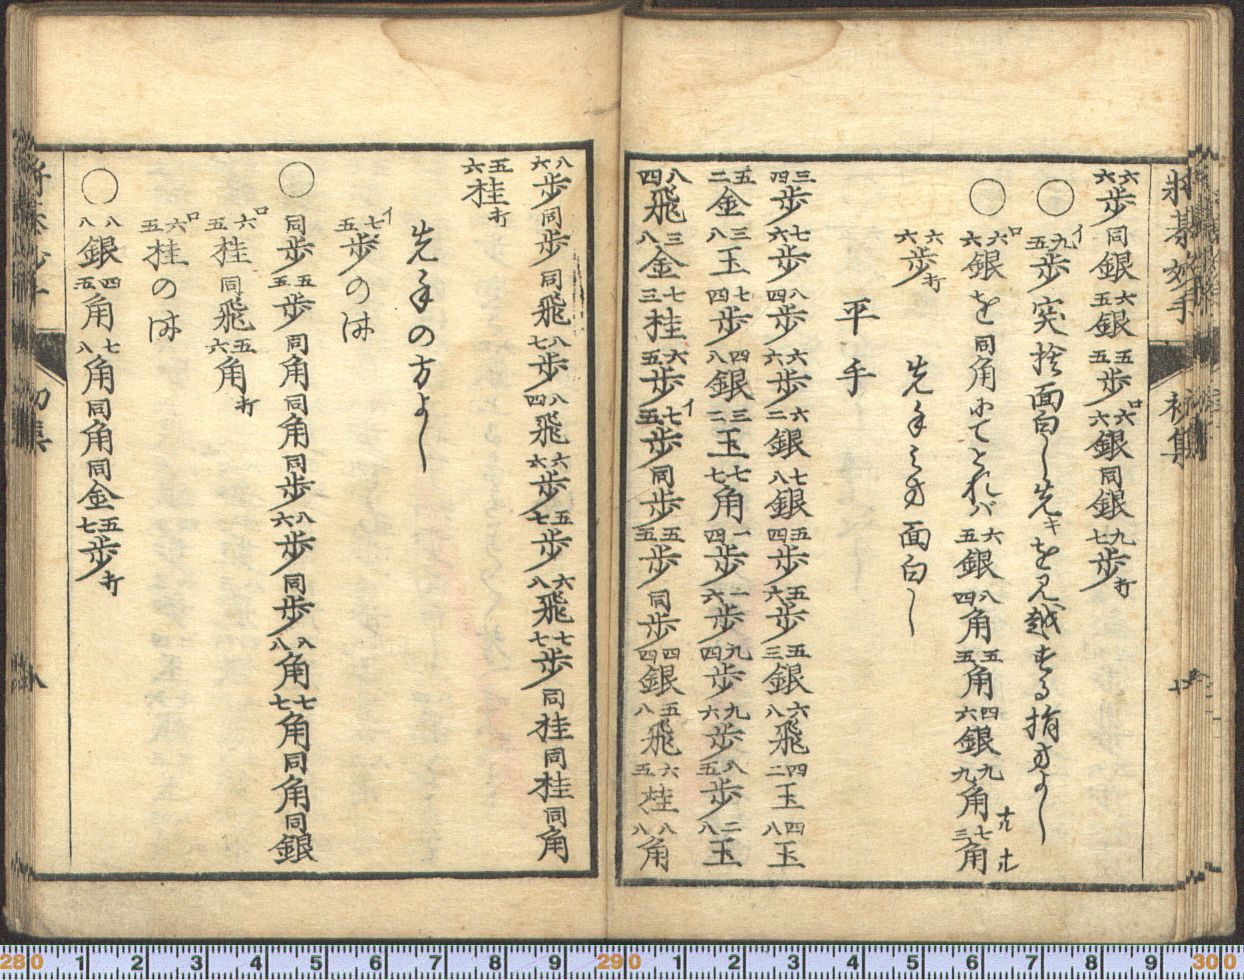 将棊妙手 初集 十
六六歩同銀六五銀五五歩ロ六六銀同銀九七歩打
○イ九五歩突捨面白し先キを見越たる指方よし
○ロ六六銀を同角にてとれバ六五銀八四角五五角四六銀九九角ナル七三角ナル
六六歩打
先手之方面白し
平手
三四歩七六歩八四歩六六歩六二銀七八銀五四歩五六歩五三銀六八飛四二玉四八玉
五二金三八玉七四歩四八銀三二玉七七角一四歩一六歩九四歩九六歩八五歩二八玉
八四飛三八金七三桂六五歩イ七五歩同歩五五歩同歩四四銀五八飛六五桂八八角
八六歩同歩同飛八七歩八四飛六六歩五七歩六八飛七七歩同桂同桂同角
五六桂打
先手の方よし
イ七五歩の
○同歩五五歩同角同角同歩八六歩同歩八八角七七角同角同銀
ロ六五桂同飛五六角打
ロ六五桂の
○八八銀四五角七八角同角同金五七歩打
280 1 2 3 4 5 6 7 8 9 290 1 2 3 4 5 6 7 8 9 300